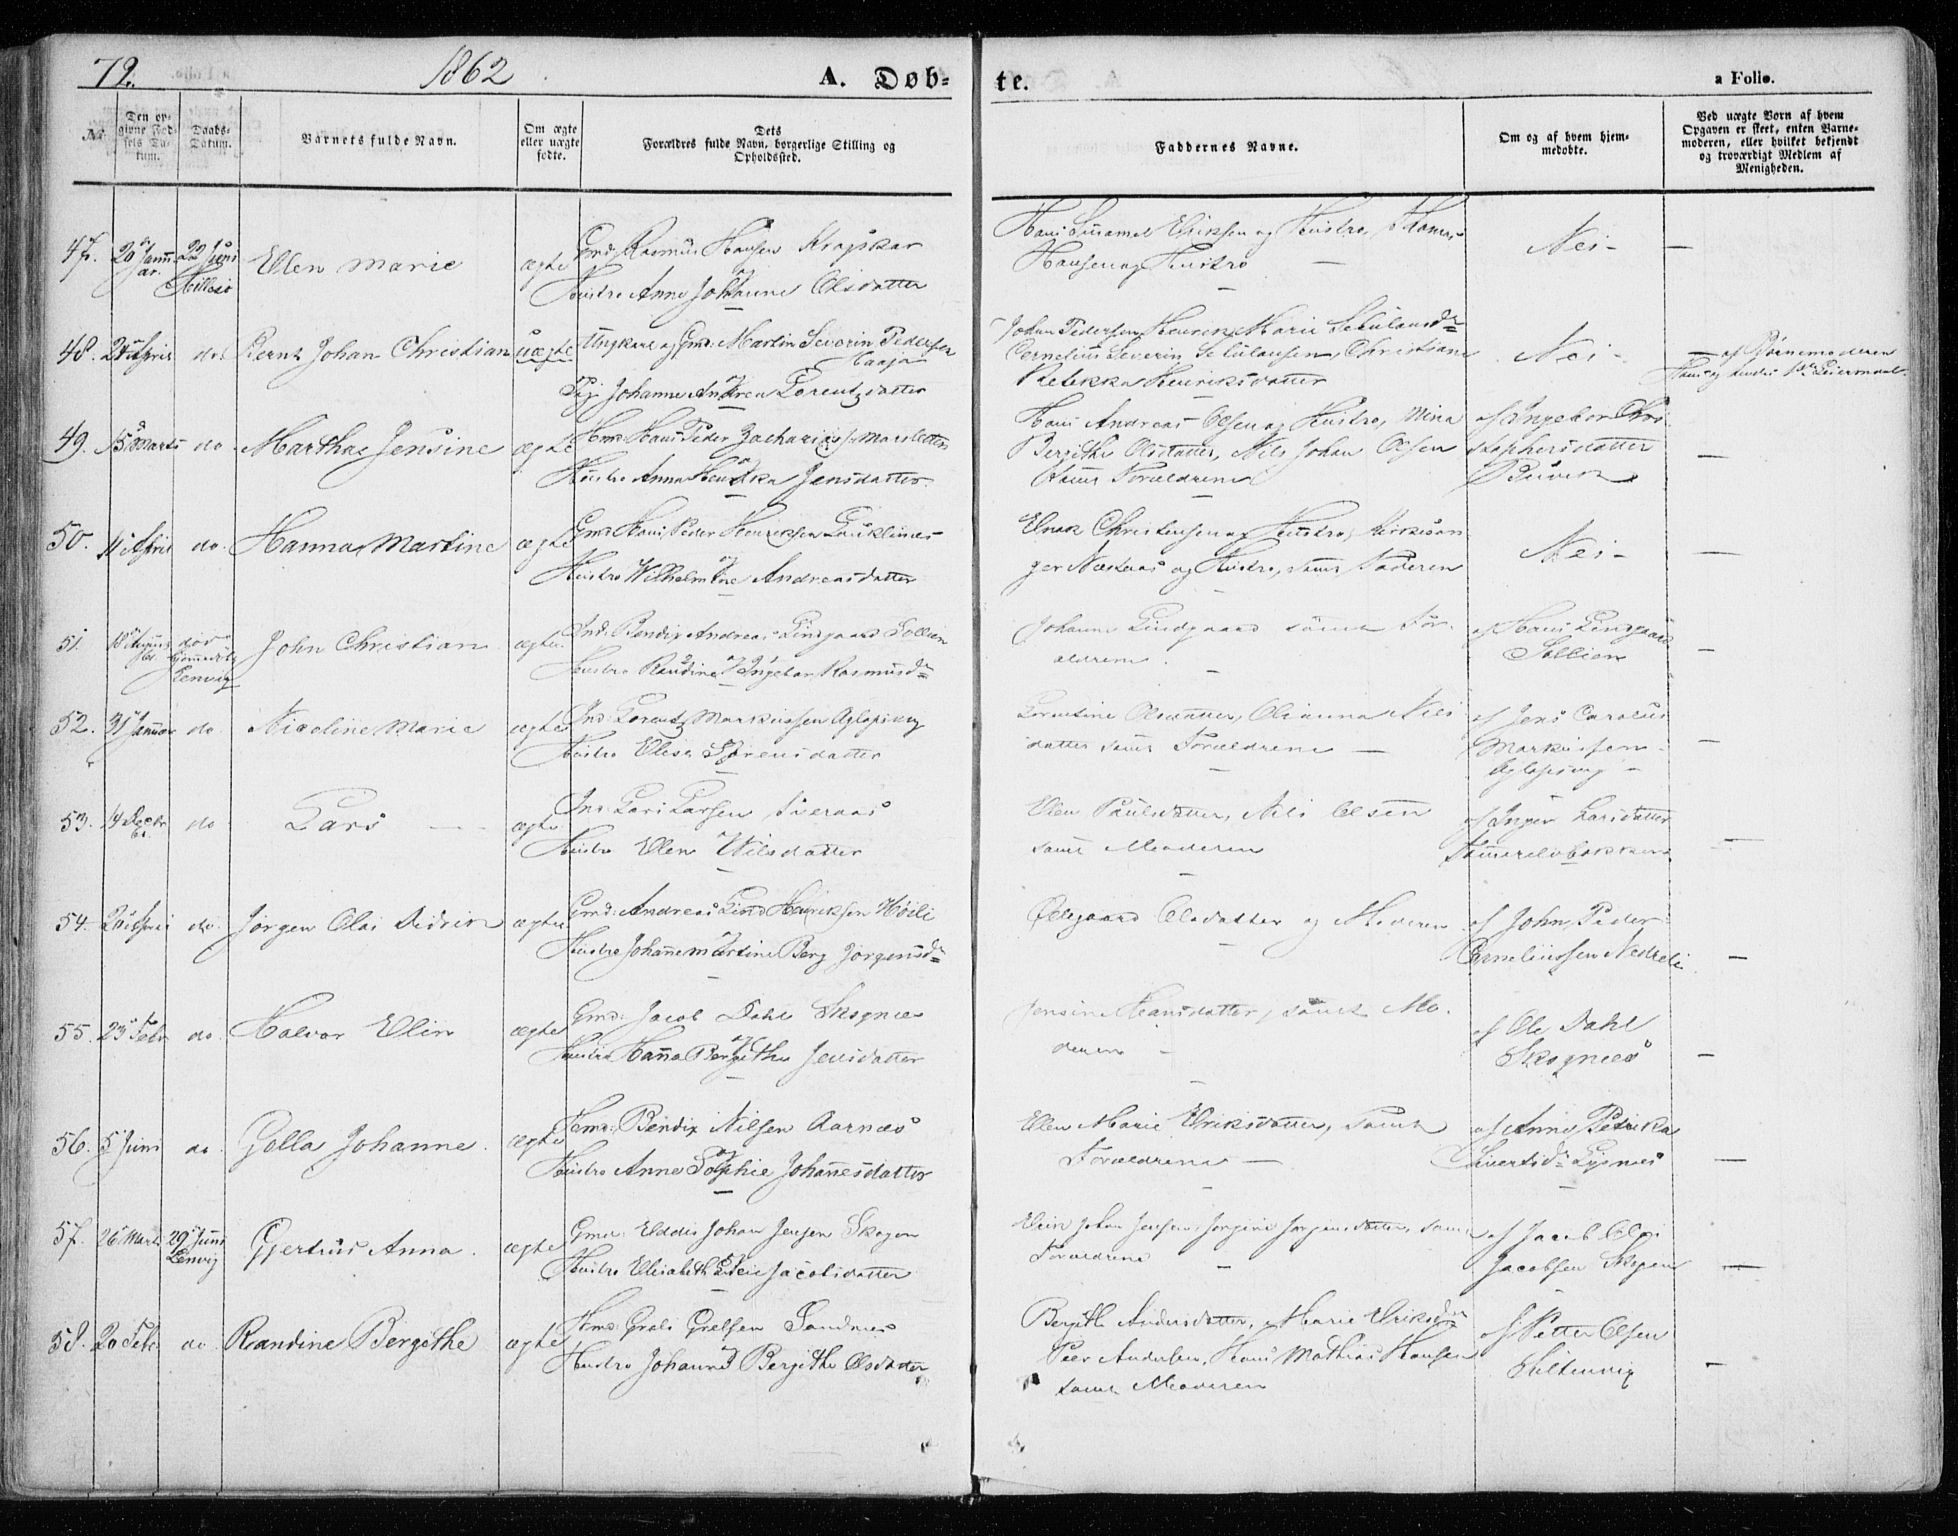 72. 1862 A. Døb- te. a Folio.
Nr.
Den opgivne Fødsels Datum.
Daabs-Datum.
Barnets fulde Navn.
Om ægte eller uægte fødte.
Dets Forældres fulde Navn, borgerlige Stilling og Opholdssted.
Faddernes Navne.
Om og af hvem hjemmedøbte.
Ved uægte Børn af hvem Opgaven er skeet, enten Barnemoderen, eller hvilket bekjendt og troværdigt Medlem af Menigheden.
47. 20 Januar 22 Juni Hillesø Ellen Marie ægte Gmd: Rasmus Hansen Krogskar
og Hustro Anne Johanne Olsdatter
Hans Eriksen og Hustro, Thomas
Hansen og Hustro —
Nei — —
48. 2 April do Bernt Johan Christian uægte Ungkarl og Gmd: Martin Severin Pedersen
Haaja
og Pige Johanne Andrea Lorentzdatter
Johan Pedersen, Marie
Cornelius Severin, Christiane
Rebekka Henriksdatter
Nei —
— af Barnemoderen
Hans og hendes 1ste Leiermaal.
49. 15 Marts do Martha Jensine ægte Hmd: Hans Peder Zachariassen
og Hustro Anna Jensdatter
Hans Andreas Olsen og Hustro, Mina
Bergithe Olsdatter, Nils Johan Olsen
samt Forældrene
af Ingebor Christophersdatter
—
50. 11 April do. Hanna Martine ægte Gmd: Hans Peder Henriksen Lauklines
og Hustro Wilhelmine Andreasdatter
Enok Christensen og Hustro, Kirkesanger
og Hustro, samt Faderen
Nei — —
51. 18 do. hjemmedøbt Lenvig John Christian ægte Ind: Bendix Andreas Lindgaard Sollien
og Hustro Randine Ingebor Rasmusdtr
Johanne Lindgaard samt Forældrene.
af Hans Lindgaard
Sollien
—
52. 31 Januar do Nicoline Marie ægte Ind: Lorentz Markussen Aglapsvig
Hustro Elise Sørensdatter
Lorentine Olsdatter, Olianna Nilsdatter
samt Forældrene —
af Jens Carolus
Markussen
Aglapsvig —
—
53. 14 Decbr 61. do Lars — ægte Ind: Lars Larsen
og Hustro Ellen Nilsdatter
Elen Paulsdatter, Nils Olsen
samt Moderen
af Inger Larsdatter
—
54. 20 April do. Jørgen Olai Didrik ægte Gmd: Andreas Lind Henriksen Høili
og Hustro Johanne Martine Berg Jørgensdtr
Ollegaard Olsdatter og Moderen
af John Peder
Corneliussen Nedreli
—
55. 23 Febr do. Halvor Elin ægte Gmd: Jacob Dahl Skognes
og Hustro Hanna Bergithe Jensdatter
Jensine Hansdatter, samt Moderen —
af Ole Dahl
Skognes
—
56. 5 Juni do Gjella Johanne. ægte Hmd: Bendix Nilsen Aarnes
og Hustro Anne Sophie Johannesdatter
Ellen Marie Eriksdatter, samt
Forældrene —
af Anne Petrika
Sivertsdtr Lysnes
—
57. 26 Marts 29 Juni Lenvig Gjertrud Anna. ægte Gmd: Eddis Johan Jensen Skogen
Hustro Elisabeth Jacobsdatter
Johan Jensen, Jørgine Jørgensdatter, samt
Forældrene —
af Jacob Olai
Jacobsen Skogen
—
58. 20 Febr do Randine Bergithe ægte Hmd: Sandnes
og Hustro Johanne Bergithe Olsdatter
Bergithe Andersdatter, Marie Eriksdtr
Peer Andersen, Hans Mathias Hansen
samt Moderen
af Petter Olsen
—